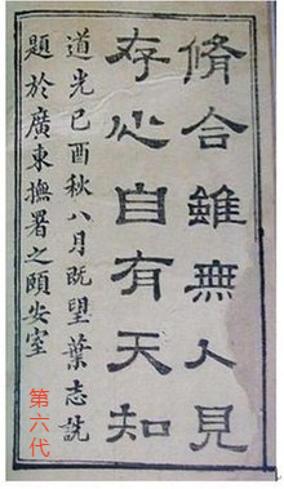 脩合雖無人見
存心自有天知
道光己酉秋八月既望葉志詵
題於廣東撫署之頤安室
第六代